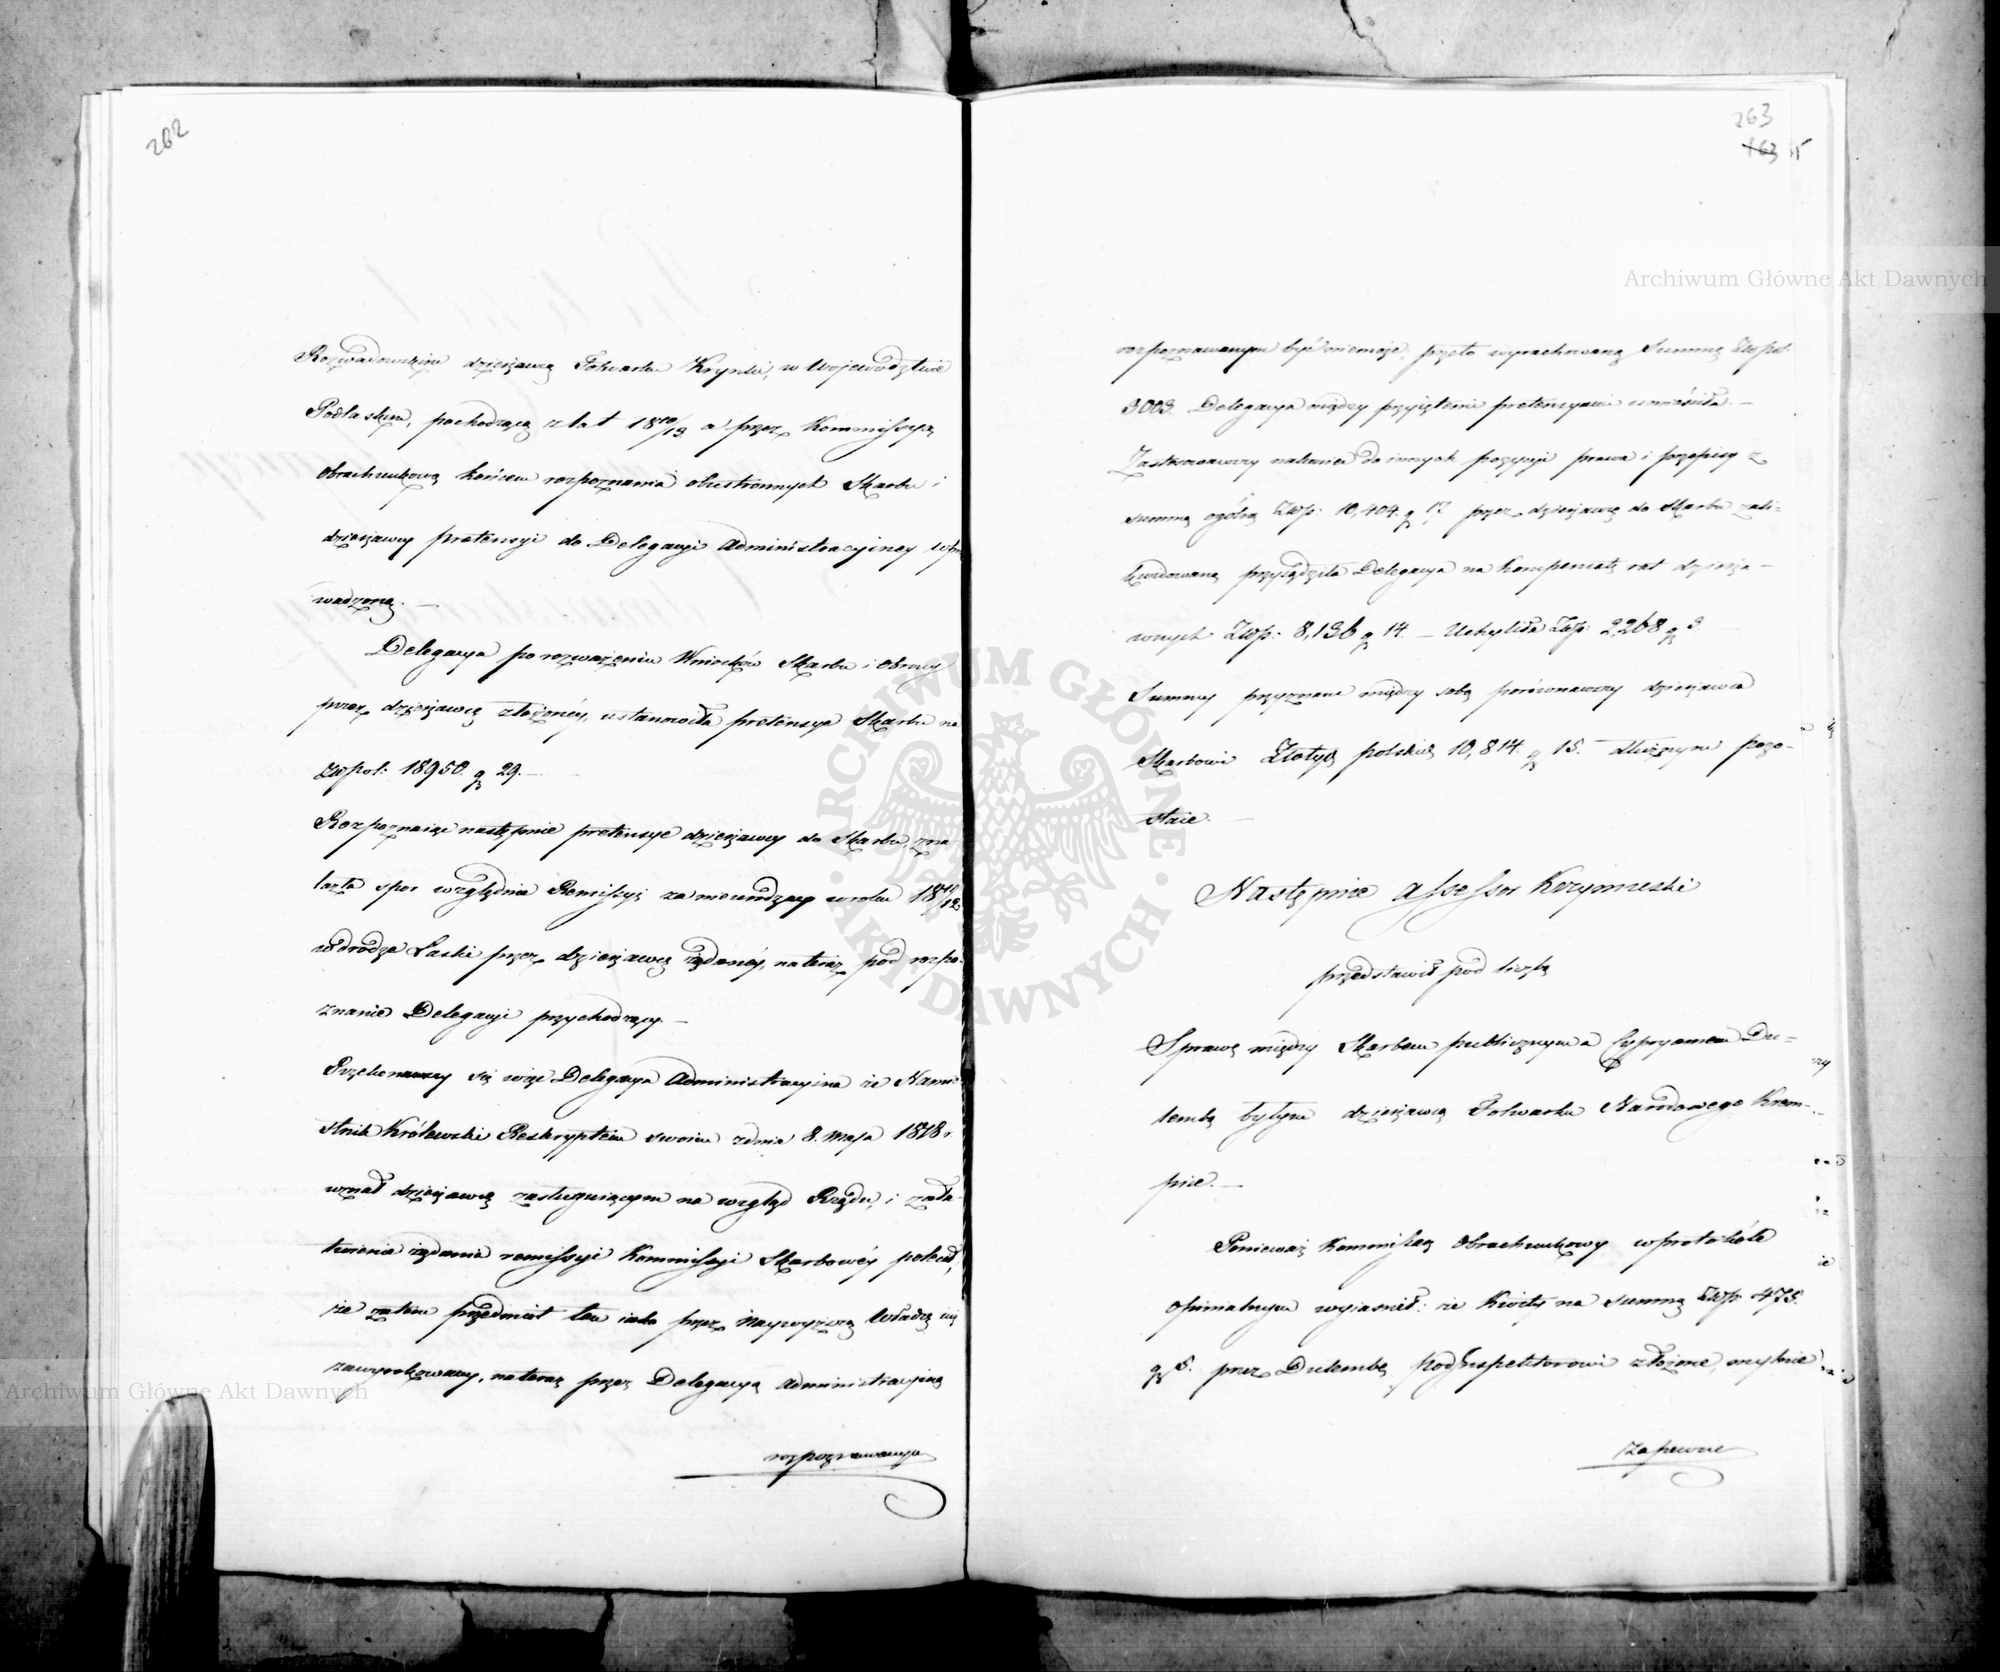 262
Rozwadowskim dzierżawcą Folwarku Krynki, w Województwie
Podlaskim, pochodzącą z lat 1810/13. a przez Kommissyą
Obrachunkową końcem rozpoznania obustronnych Skarbu i
dzierżawcy pretensyi do Delegacyi Administracyiney wpro
wadzoną. —
Delegacya po rozważeniu Wniosków Skarbu i Obrony
przez dzierżawcę złożonéy, ustanowiła pretensye Skarbu na
Złłpol: 18950. gr 29. —
Rozpoznaiąc następnie pretensye dzierżawcy do Skarbu, zna
lazła spor względnie Remissyi za nieurodzaj w roku 1811/12
w drodze Łaski przez dzierżawcę żądanéy, na teraz pod rozpo
znanie Delegacyi przychodzący. —
Przekonawszy się więc Delegacya Administracyina że Namie
stnik Królewski Reskryptem swoim z dnia 8. Maja 1818 r.
uznał dzierżawcę zasługuiącym na wzgląd Rządu, i zała
twienie żądania remissyi Kommissyi Skarbowéy polecił,
że zatem przedmiot ten iako przez Naywyższą Władzę iuż
zawyrokowany, na teraz przez Delegacyą Administracyiną
rozpoznawanym
263
163
rozpoznawanym być niemoże, przeto wyrachowaną Summę Złłpol:
3003. Delegacya między przyiętemi pretensyami umieściła. —
Zastosowawszy nakoniec do innych pozycyi prawa i przepisy z
summy ogólnéy Złłp: 10,404. gr 17. przez dzierżawcę do Skarbu zali-
kwidowaną przysądziła Delegacya na kompensatę rat dzierża-
wnych Złłp: 8,136 gr 14. — Uchyliła Złłp: 2,268 gr 3.
Summy przyznane między sobą porównawszy dzierżawca
Skarbowi Złotych polskich 10,814. gr 15. dłużnym pozo-
staie. —
Następnie Assessor Krzymuski
przedstawił pod liczbą
Sprawę między Skarbem publicznym a Cypryanem Du-
lembą byłym dzierżawcą Folwarku Narodowego Krem-
pice. —
Ponieważ Kommissarz Obrachunkowy w protokóle
Opinialnym wyiaśnił: że Kwity na summę Złłp: 475.
gr 5. przez Dulembę Podinspektorowi złożone, mylnie
zapewne
Archiwum Główne Akt Dawnych
Archiwum Główne Akt Dawnych
ARCHIWUM GŁÓWNE AKT DAWNYCH